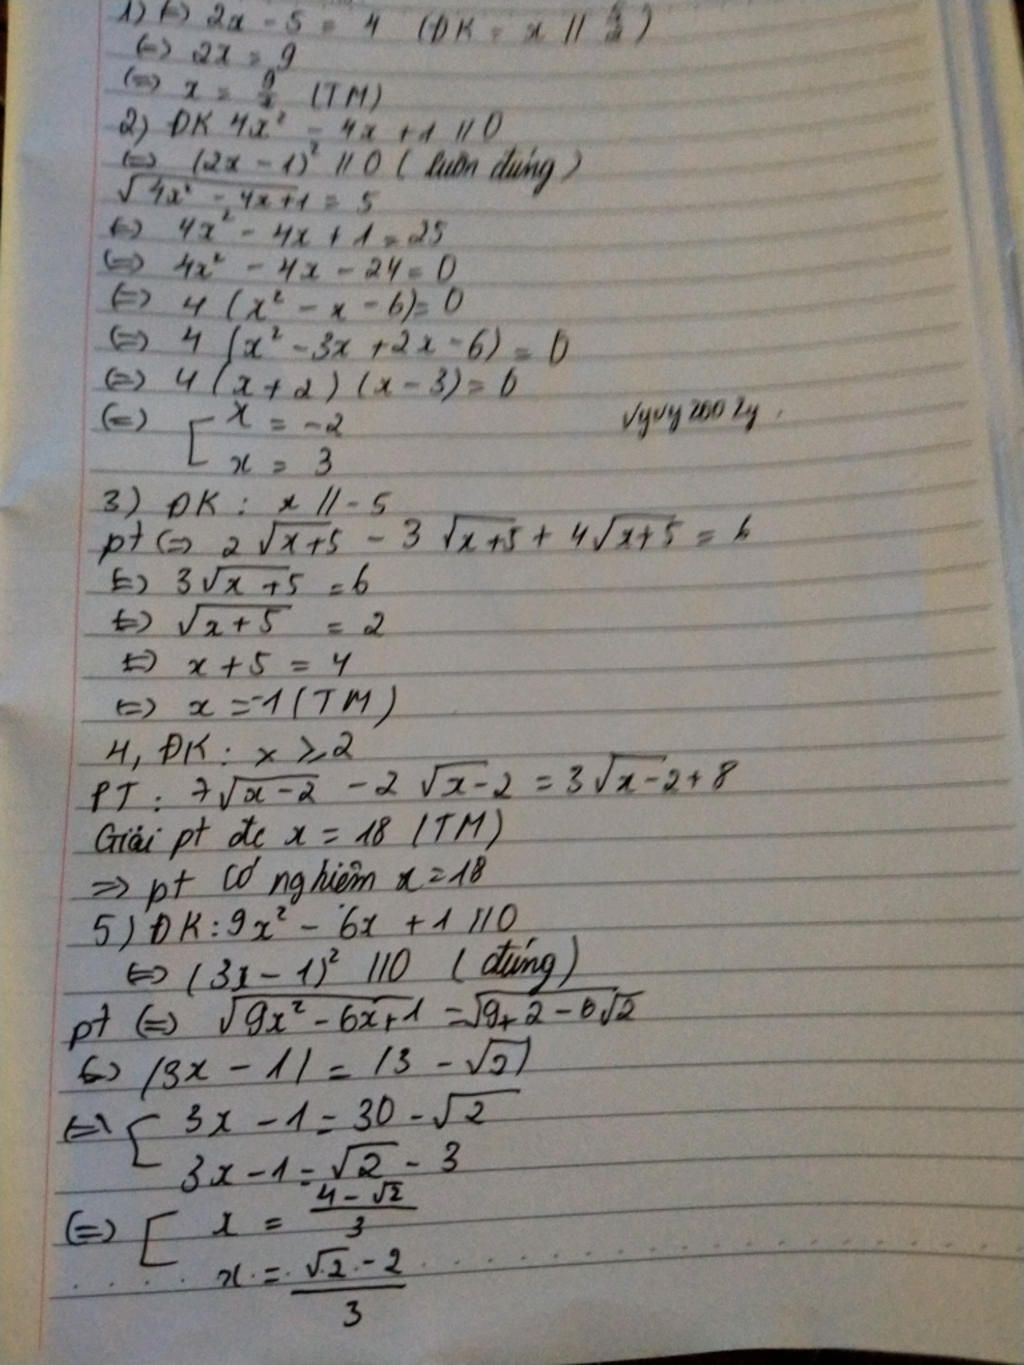 1) (=) 2x - 5 = 4 (ĐK = x // 5/2)
(=) 2x = 9
(=) x = 9/2 (TM)
2) ĐK 4x² - 4x + 1 // 0
(=) (2x - 1)² // 0 ( luôn đúng )
√4x² - 4x+1 = 5
(=) 4x² - 4x + 1 = 25
(=) 4x² - 4x - 24 = 0
(=) 4 (x² - x - 6) = 0
(=) 4 (x² - 3x + 2x - 6) = 0
(=) 4 (x + 2) (x - 3) = 0
(=) [ x = -2
x = 3
3) ĐK : x // - 5
pt (=) 2 √x+5 - 3 √x+5 + 4√x+5 = 6
(=) 3√x+5 = 6
(=) √x+5 = 2
(=) x + 5 = 4
(=) x = -1 (TM)
4, ĐK : x ≥ 2
PT : 7√x-2 - 2 √x-2 = 3√x-2 + 8
Giải pt đc x = 18 (TM)
=> pt có nghiệm x = 18
5) ĐK : 9x² - 6x + 1 // 0
(=) (3x - 1)² // 0 ( đúng )
pt (=) √9x² - 6x + 1 = √9 + 2 - 6√2
(=) |3x - 1| = |3 - √2|
(=) [ 3x - 1 = 30 - √2
3x - 1 = √2 - 3
(=) [ x = 4 - √2 / 3
x = √2 - 2 / 3